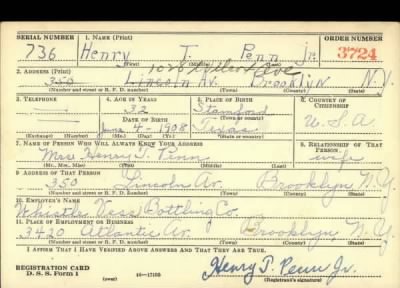 SERIAL NUMBER 1. NAME (Print) ORDER NUMBER
736 Henry T. Penn Jr. 3724
(First) (Middle) (Last)
2. ADDRESS (Print) Ave
350 Lincoln Av. Brooklyn N.Y.
(Number and street or R. F. D. number) (Town) (County) (State)
3. TELEPHONE 4. AGE IN YEARS 5. PLACE OF BIRTH 6. COUNTRY OF CITIZENSHIP
32 Stamford
DATE OF BIRTH (Town or county)
June 4-1908 Texas U.S.A
(Exchange) (Number) (Mo.) (Day) (Yr.) (State or country)
7. NAME OF PERSON WHO WILL ALWAYS KNOW YOUR ADDRESS 8. RELATIONSHIP OF THAT PERSON
Mrs Henry T. Penn wife
(Mr., Mrs., Miss) (First) (Middle) (Last)
9. ADDRESS OF THAT PERSON
350 Lincoln Av. Brooklyn N.Y.
(Number and street or R. F. D. number) (Town) (County) (State)
10. EMPLOYER'S NAME
Bottling Co.
11. PLACE OF EMPLOYMENT OR BUSINESS
3420 Atlantic Av Brooklyn, N.Y.
(Number and street or R. F. D. number) (Town) (County) (State)
I AFFIRM THAT I HAVE VERIFIED ABOVE ANSWERS AND THAT THEY ARE TRUE.
REGISTRATION CARD
D. S. S. Form 1 (over) 16—17105 Henry T. Penn Jr.